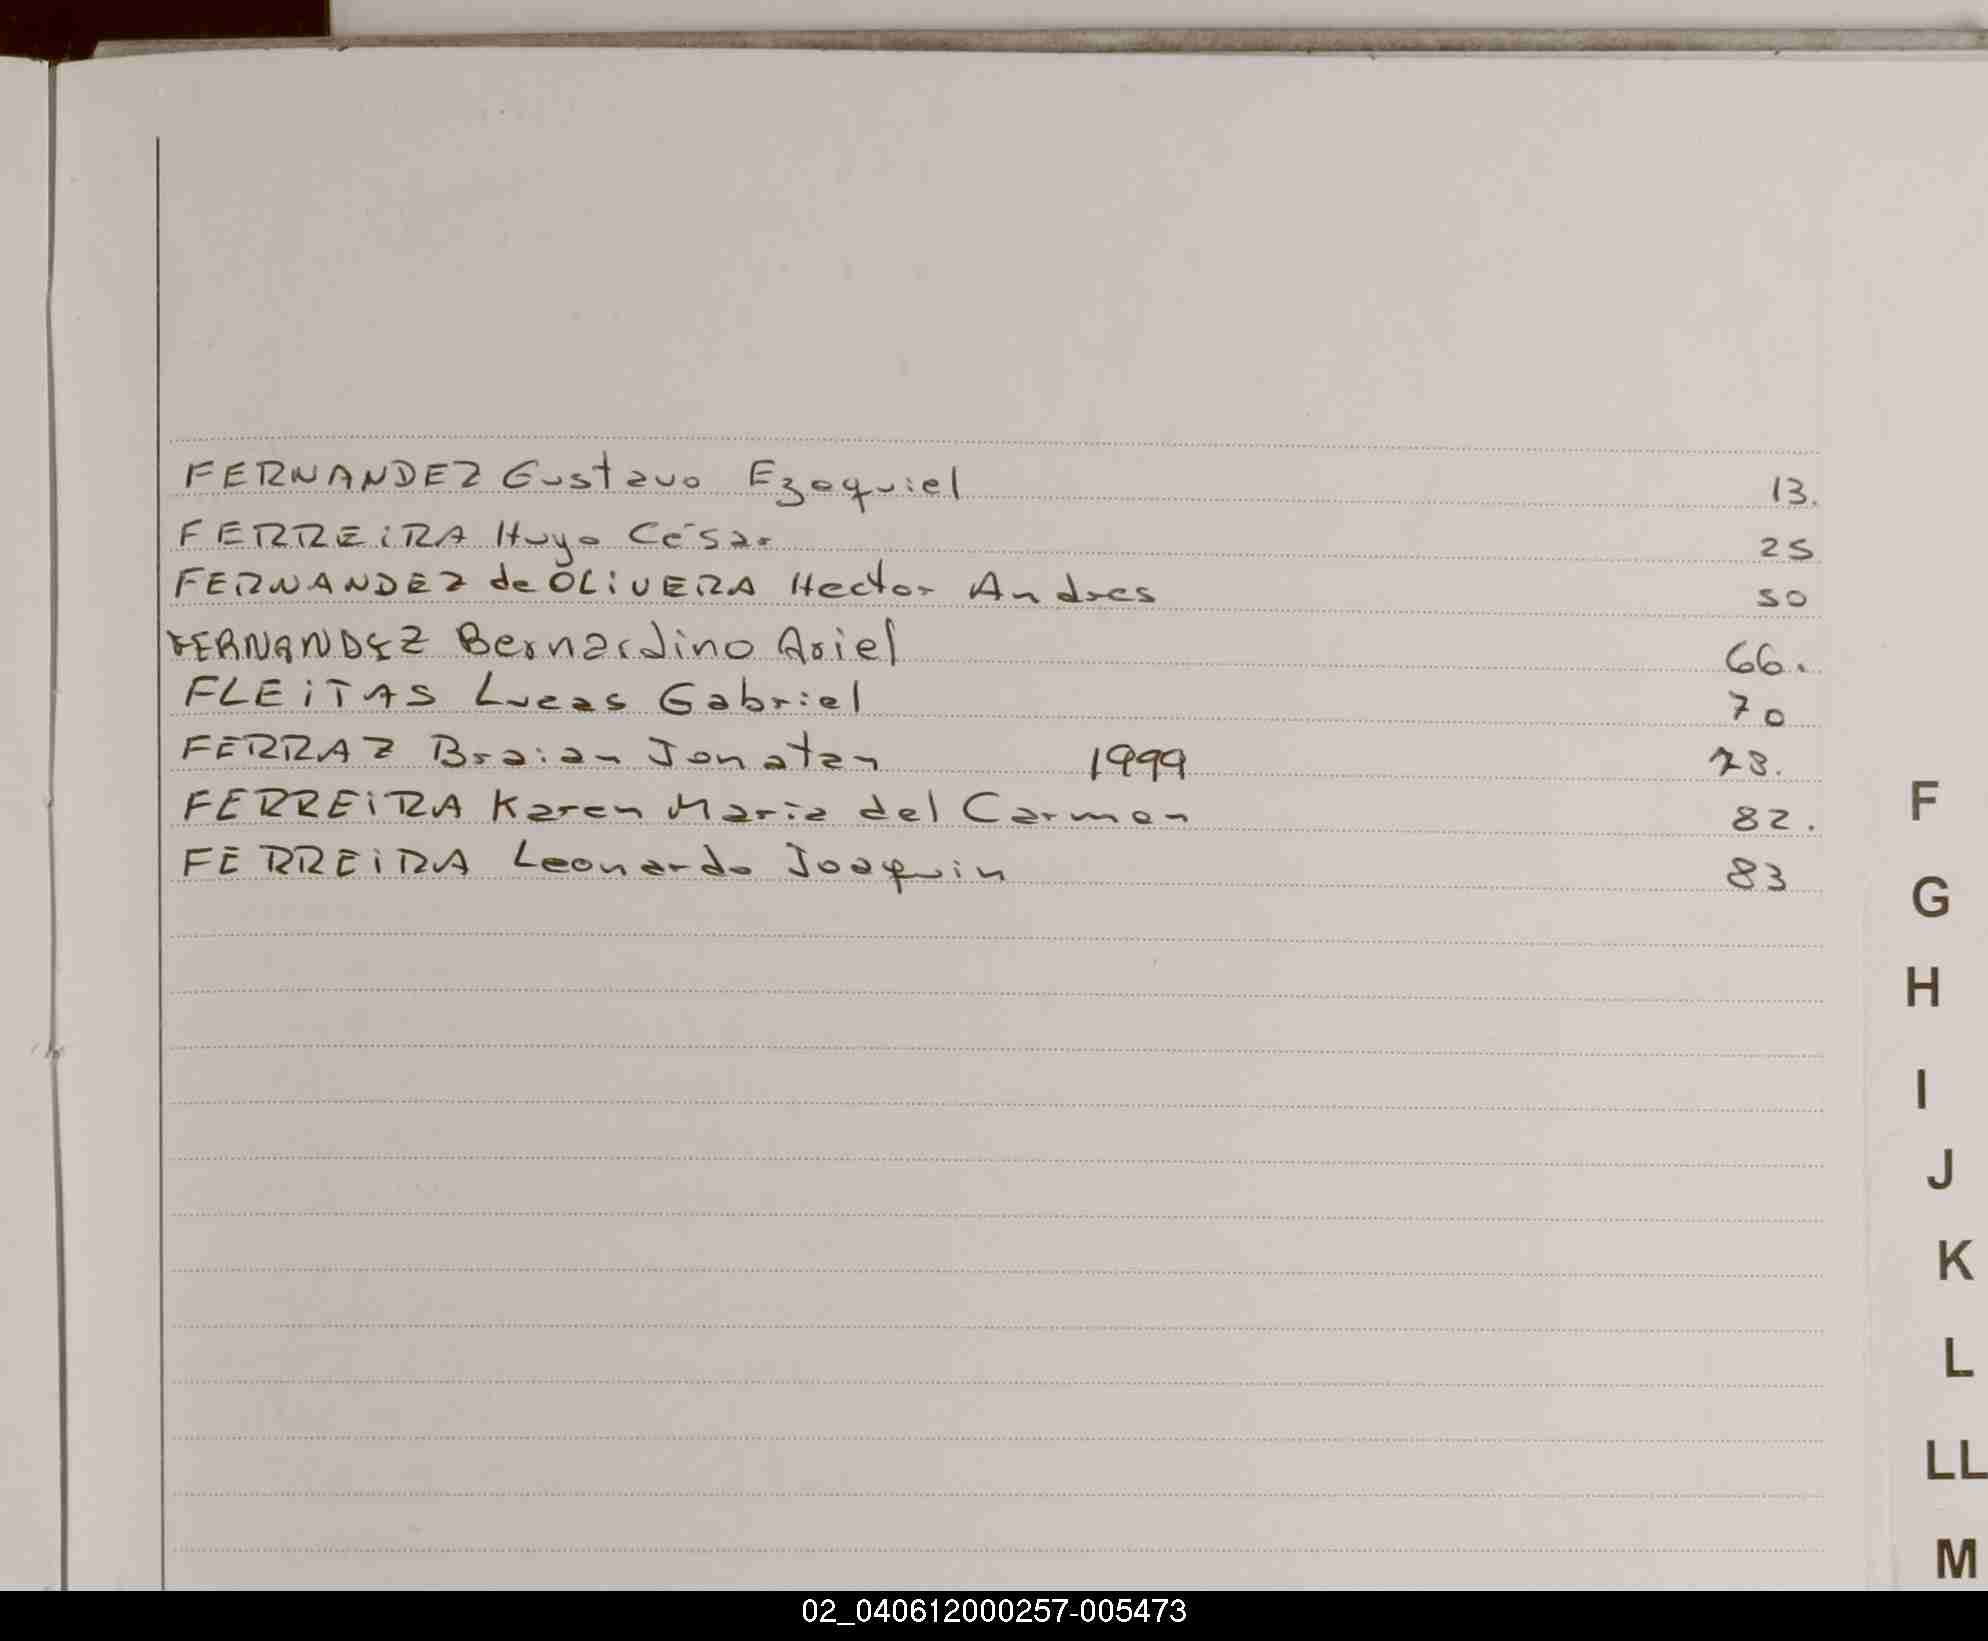 FERNANDEZ Gustavo Ezequiel 13.
FERREIRA Hugo César 25
FERNANDEZ de OLIVERA Hector Andres 50
FERNANDEZ Bernardino Ariel 66.
FLEITAS Lucas Gabriel 70
FERRAZ Braian Jonatan 1999 73.
FERREIRA Karen Maria del Carmen 82.
FERREIRA Leonardo Joaquin 83
F
G
H
I
J
K
L
LL
M
02_040612000257-005473